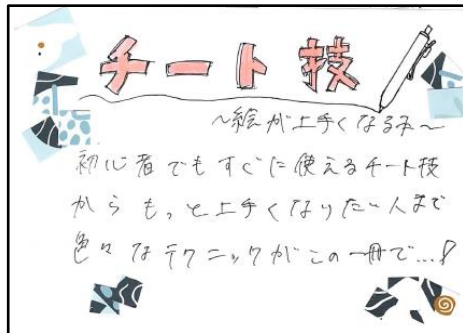 チート技
～絵が上手くなるみ～
初心者でもすぐに使えるチート技
からもっと上手くなりたい人まで
色々なテクニックがこの一冊で…!